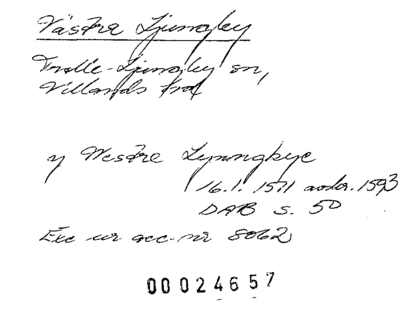 Västra Ljungby
Trolle-Ljungby sn,
Villands hd
y Westre Lyunngbye
16.1. 1571 avskr. 1593
DAB s. 50
Exc ur acc-nr 8062
00024657